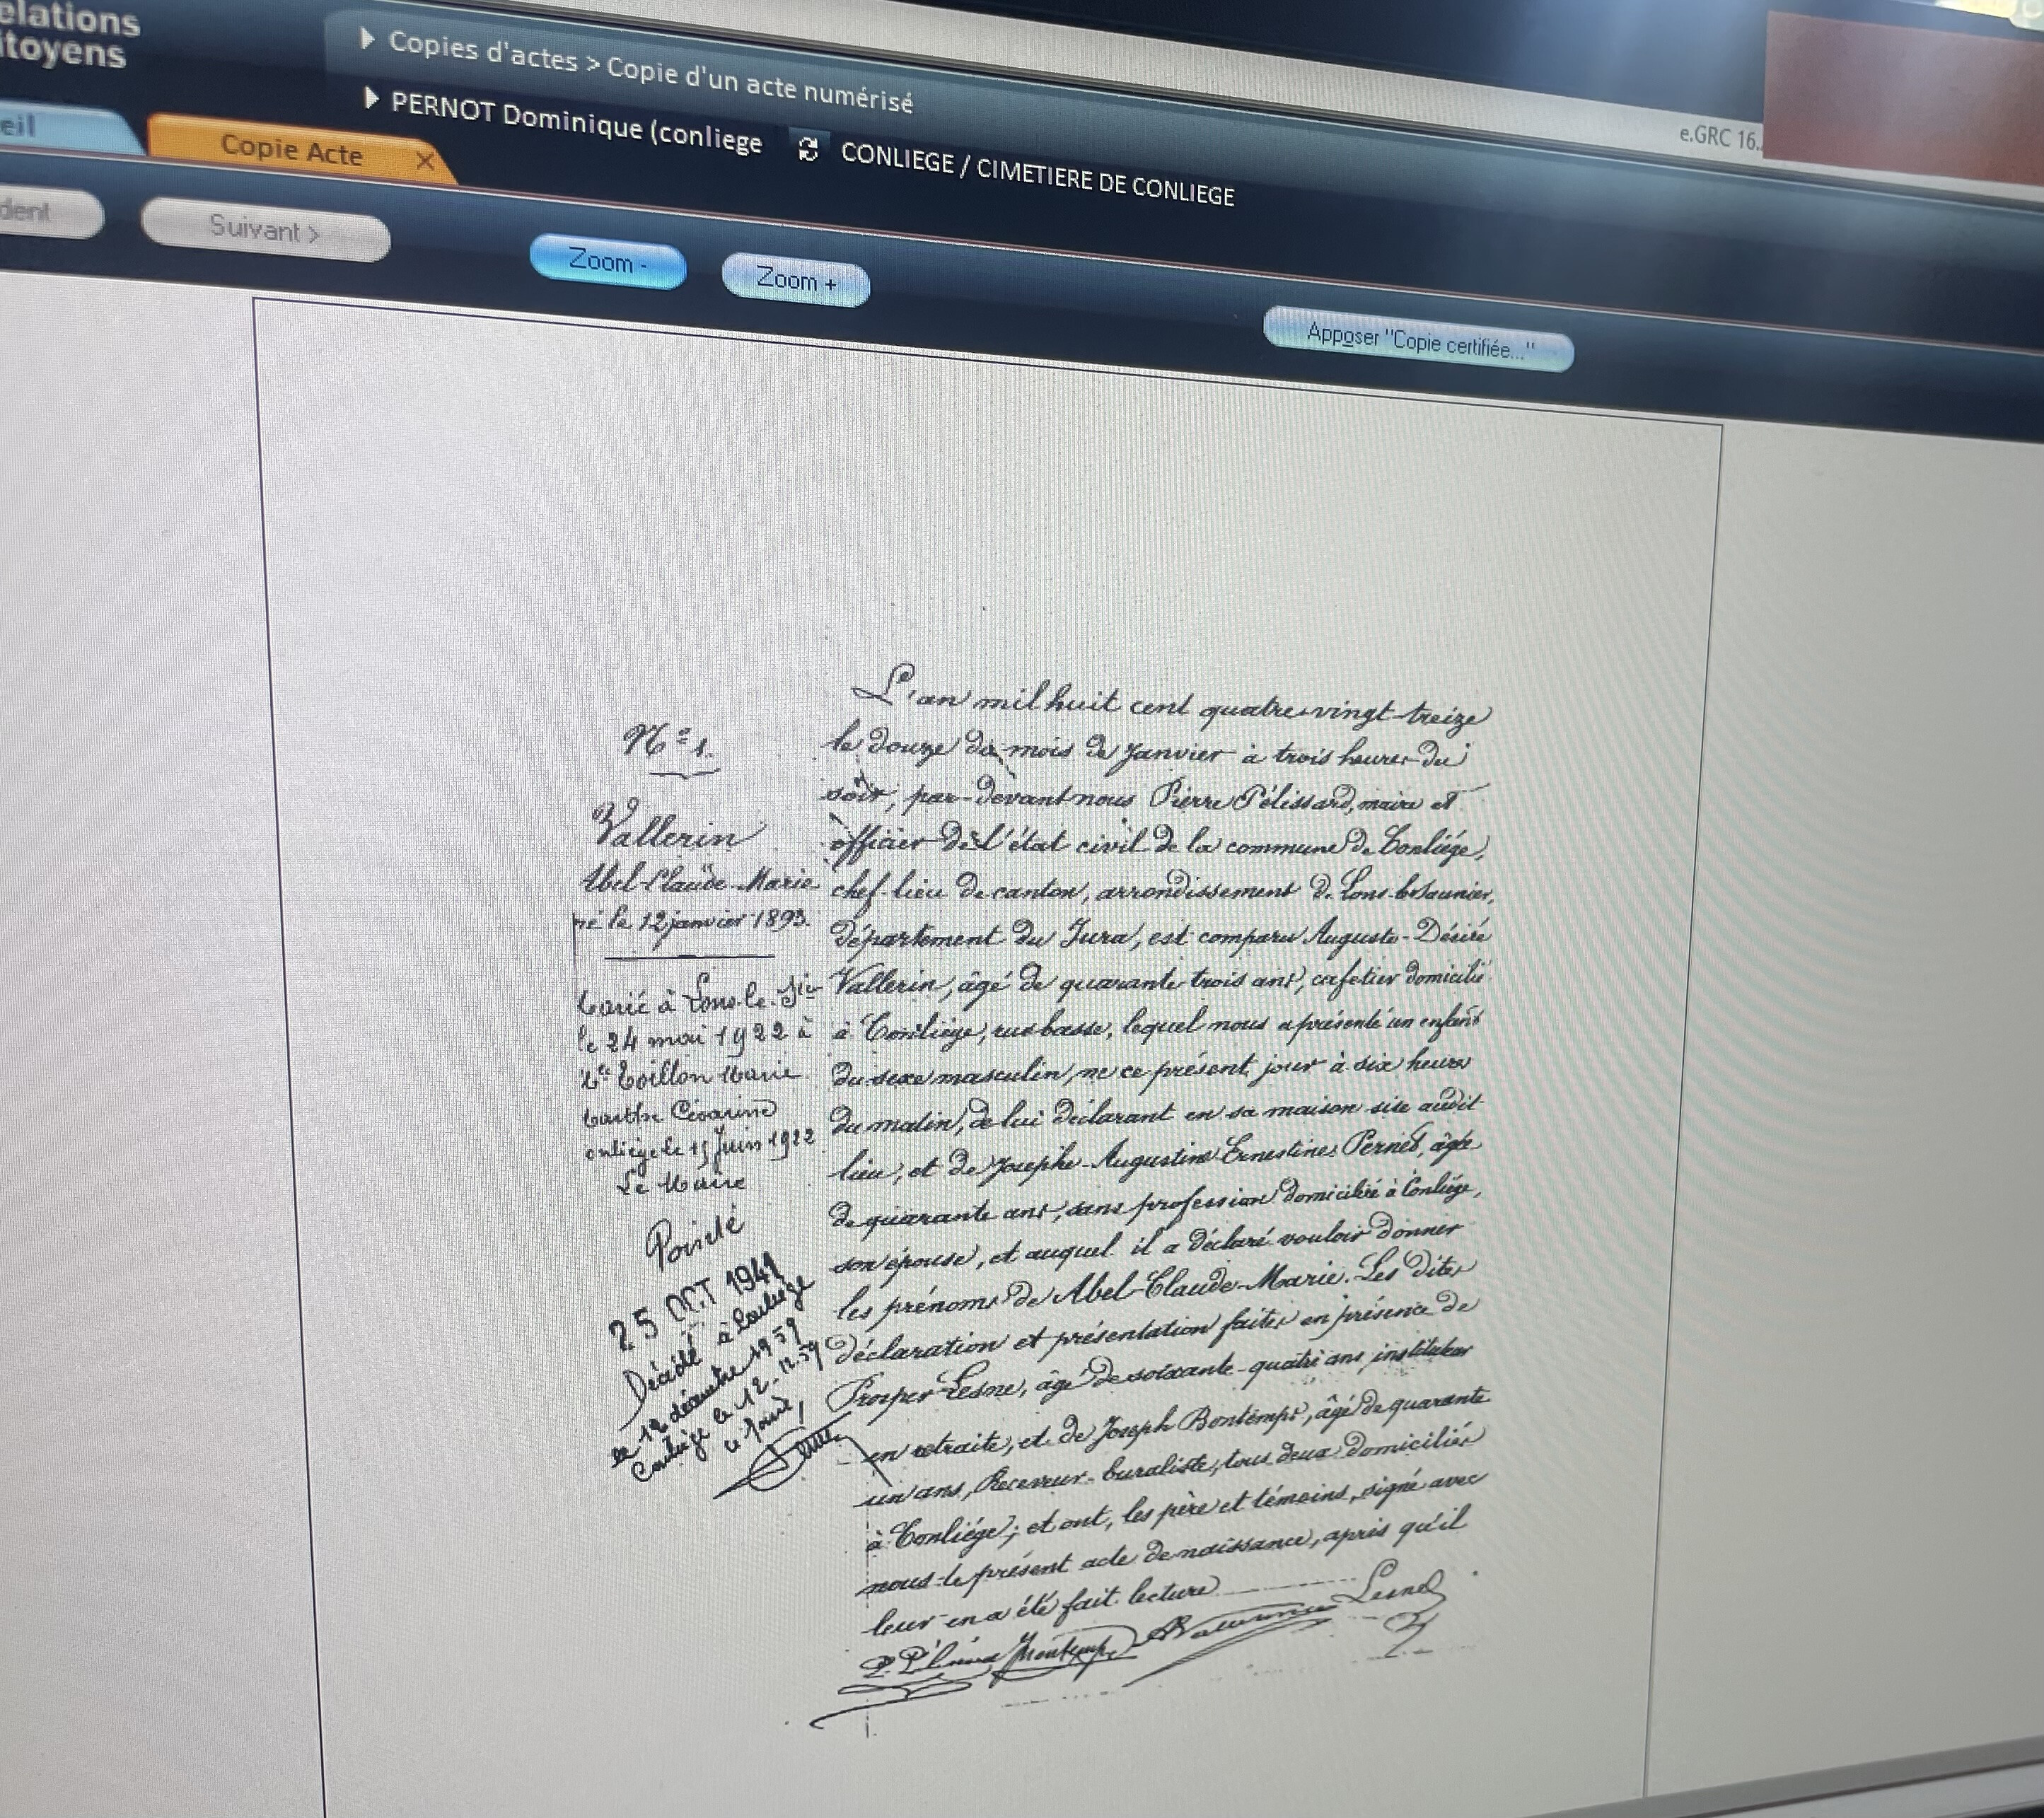 elations
itoyens
Copies d'actes > Copie d'un acte numérisé
PERNOT Dominique (conliege
CONLIEGE / CIMETIERE DE CONLIEGE
e.GRC 16..
eil
Copie Acte
dent
Suivant >
Zoom -
Zoom +
Apposer "Copie certifiée..."
N° 1.
Vallerin
Abel-Claude-Marie
né le 12 janvier 1893.
Marié à Lons-le-Sier
le 24 mai 1922 à
Marie
Marthe Césarine
onliège le 15 Juin 1922
Le Maire
Pointé
25 OCT 1941
Décédé à Conliège
le 12 décembre 1959
Conliège le 12-12-59
Le Maire,
L'an mil huit cent quatre-vingt-treize
le douze du mois de Janvier à trois heures du
soir, par-devant nous Pierre Pélissard, maire et
officier de l'état civil de la commune de Conliége,
chef-lieu de canton, arrondissement de Lons-le-Saunier,
département du Jura, est comparu Auguste-Désiré
Vallerin, âgé de quarante trois ans, cafetier domicilié
à Conliége, rue basse, lequel nous a présenté un enfant
du sexe masculin, né ce présent jour à six heures
du matin, de lui déclarant en sa maison sise audit
lieu, et de Josephe-Augustine Ernestine Pernet, âgée
de quarante ans, sans profession domiciliée à Conliége,
son épouse, et auquel il a déclaré vouloir donner
les prénoms de Abel-Claude-Marie. Les dites
déclaration et présentation faites en présence de
Prosper Lesne, âgé de soixante-quatre ans, instituteur
en retraite, et de Joseph Bontemps, âgé de quarante
un ans, Receveur-buraliste, tous deux domiciliés
à Conliége; et ont, les père et témoins, signé avec
nous le présent acte de naissance, après qu'il
leur en a été fait lecture
Lesne